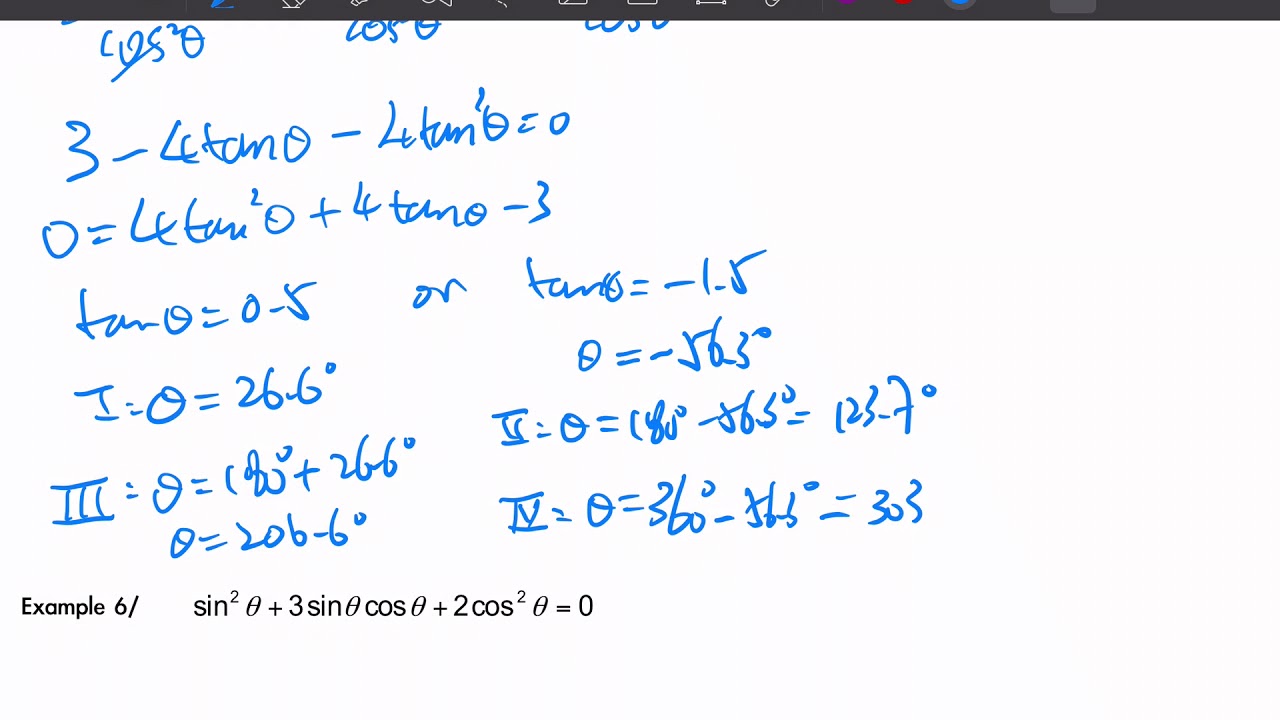 cos²θ cos²θ cos²θ
3 - 4tanθ - 4tan²θ = 0
0 = 4tan²θ + 4tanθ - 3
tanθ = 0.5 or tanθ = -1.5
θ = -56.3°
I: θ = 26.6°
II: θ = 180° - 56.3° = 123.7°
III: θ = 180° + 26.6°
IV: θ = 360° - 56.3° = 303
θ = 206.6°
Example 6/ sin² θ + 3 sin θ cos θ + 2 cos² θ = 0